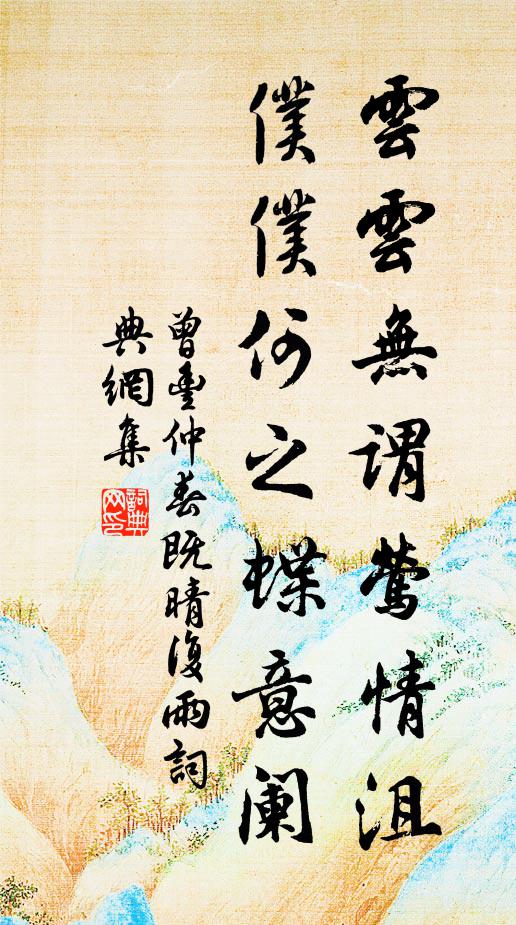 雲雲無謂鶯情沮
僕僕何之蝶意阑
曾豐仲春既晴復雨詞
典網集
詞典网印